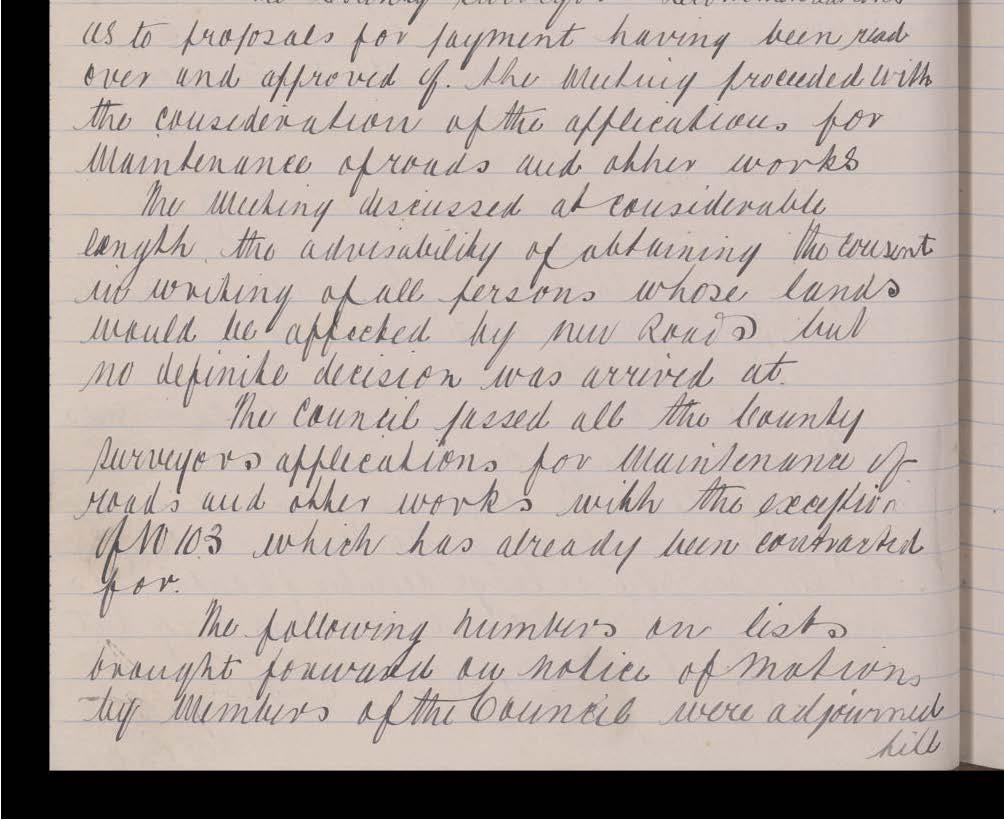 The County Surveyors Recommendations
as to proposals for payment having been read
over and approved of. the Meeting proceeded with
the consideration of the applications for
Maintenance of roads and other works
The Meeting discussed at considerable
length the advisability of obtaining the consent
in writing of all persons whose lands
would be affected by new Roads but
no definite decision was arrived at.
The Council passed all the County
Surveyors applications for Maintenance of
roads and other works with the exception
of No 103 which has already been contracted
for.
The following numbers on lists
brought forward on notice of Motions
by Members of the Council were adjourned
till